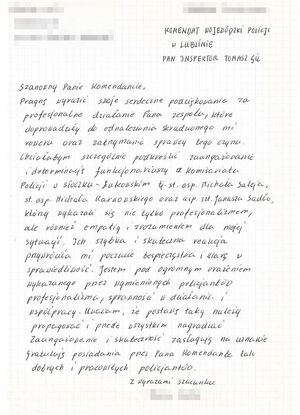 KOMENDANT WOJEWÓDZKI POLICJI
W LUBLINIE
PAN INSPEKTOR TOMASZ GIL
Szanowny Panie Komendancie,
Pragnę wyrazić swoje serdeczne podziękowania za
profesjonalne działanie Pana zespołu, które
doprowadziły do odnalezienia skradzionego mi
roweru oraz zatrzymania sprawcy tego czynu.
Chciałabym szczególnie podkreślić zaangażowanie
i determinację funkcjonariuszy z Komisariatu
Policji w tj. st. asp. Michała
st. asp. Michała oraz asp. szt. Janusza
którzy wykazali się nie tylko profesjonalizmem,
ale również empatią i zrozumieniem dla mojej
sytuacji. Ich szybka i skuteczna reakcja
przywróciła mi poczucie bezpieczeństwa i wiarę w
sprawiedliwość. Jestem pod ogromnym wrażeniem
wykazanego przez wymienionych policjantów
profesjonalizmu, sprawności w działaniu i
współpracy. Uważam, że postawy taką należy
propagować i przede wszystkim nagradzać.
Zaangażowanie i skuteczność zasługują na uznanie
Gratuluję posiadania przez Pana Komendanta tak
dobrych i pracowitych policjantów.
Z wyrazami szacunku